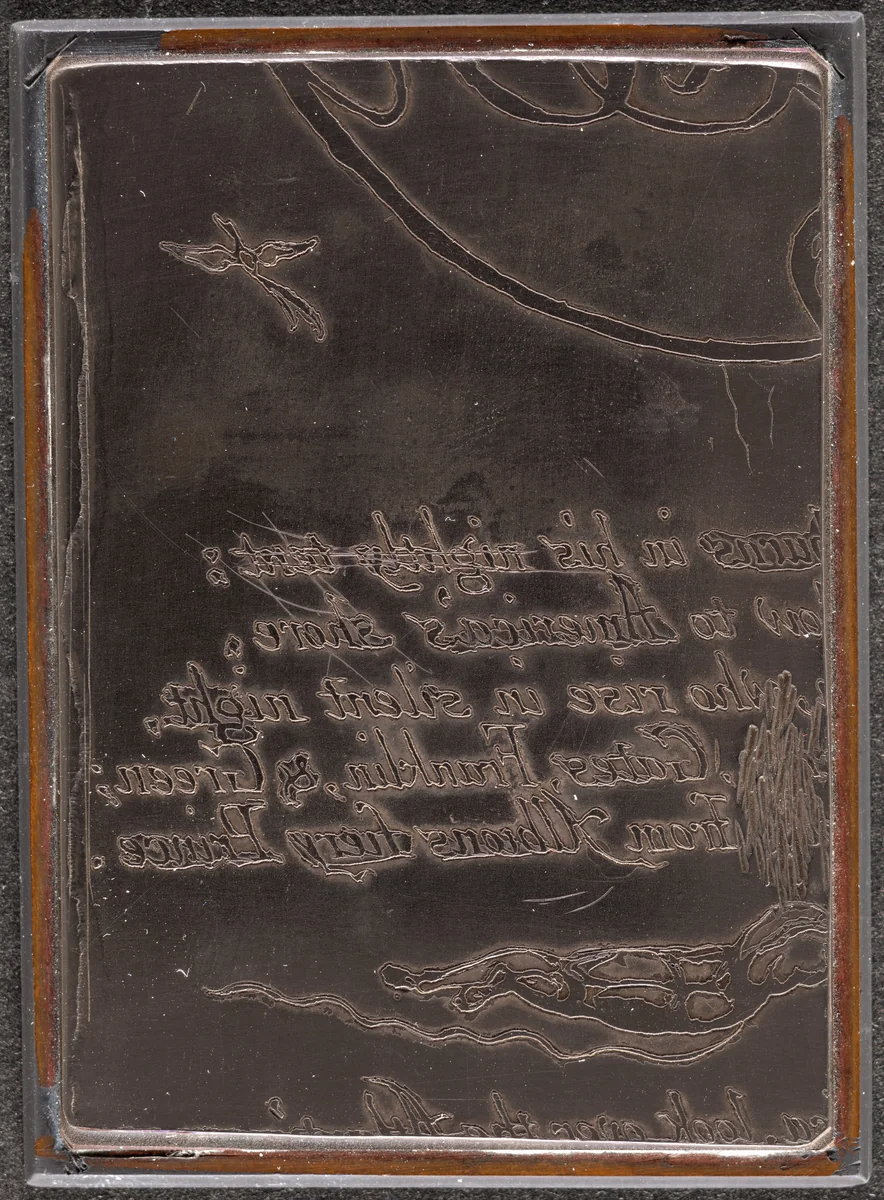 burns in his nightly tent:
low to America's shore;
who rise in silent night,
Gates, Franklin, & Green;
From Albions fiery Prince.
ca. look over the Atl